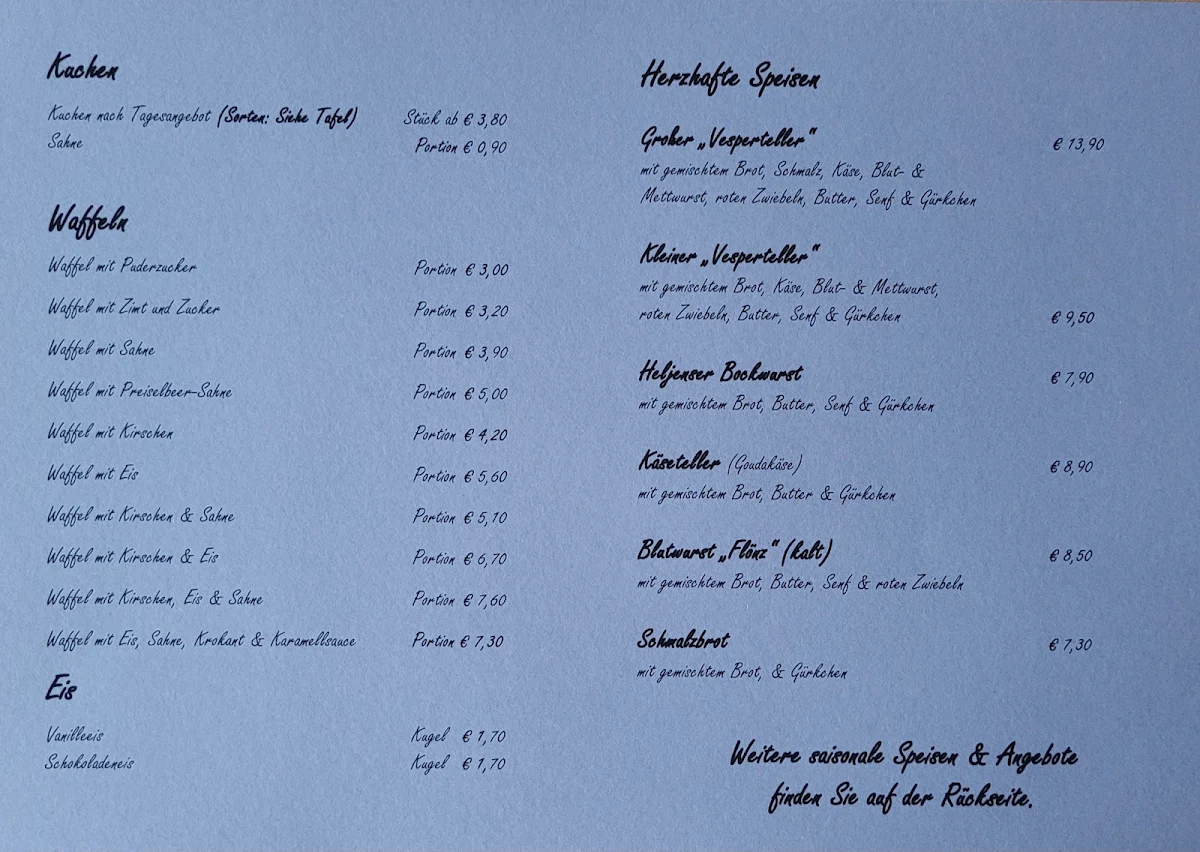 Kuchen
Kuchen nach Tagesangebot (Sorten: Siehe Tafel) Stück ab € 3,80
Sahne Portion € 0,90
Waffeln
Waffel mit Puderzucker Portion € 3,00
Waffel mit Zimt und Zucker Portion € 3,20
Waffel mit Sahne Portion € 3,90
Waffel mit Preiselbeer-Sahne Portion € 5,00
Waffel mit Kirschen Portion € 4,20
Waffel mit Eis Portion € 5,60
Waffel mit Kirschen & Sahne Portion € 5,10
Waffel mit Kirschen & Eis Portion € 6,70
Waffel mit Kirschen, Eis & Sahne Portion € 7,60
Waffel mit Eis, Sahne, Krokant & Karamellsauce Portion € 7,30
Eis
Vanilleeis Kugel € 1,70
Schokoladeneis Kugel € 1,70
Herzhafte Speisen
Großer „Vesperteller“ € 13,90
mit gemischtem Brot, Schmalz, Käse, Blut- &
Mettwurst, roten Zwiebeln, Butter, Senf & Gürkchen
Kleiner „Vesperteller“
mit gemischtem Brot, Käse, Blut- & Mettwurst,
roten Zwiebeln, Butter, Senf & Gürkchen € 9,50
Heljenser Bockwurst € 7,90
mit gemischtem Brot, Butter, Senf & Gürkchen
Käseteller (Goudakäse) € 8,90
mit gemischtem Brot, Butter & Gürkchen
Blutwurst „Flönz“ (kalt) € 8,50
mit gemischtem Brot, Butter, Senf & roten Zwiebeln
Schmalzbrot € 7,30
mit gemischtem Brot, & Gürkchen
Weitere saisonale Speisen & Angebote
finden Sie auf der Rückseite.